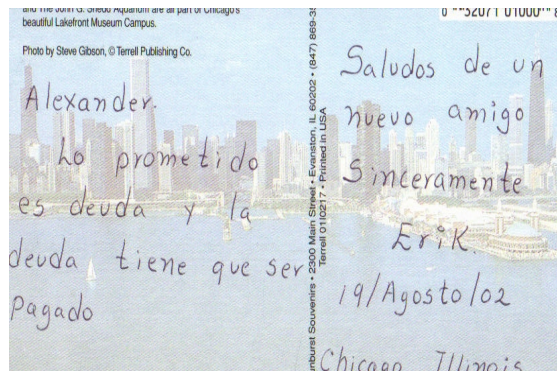 and The John G. Shedd Aquarium are all part of Chicago's
beautiful Lakefront Museum Campus.
Photo by Steve Gibson, © Terrell Publishing Co.
Alexander.
Lo prometido
es deuda y la
deuda tiene que ser
Pagado
unburst Souvenirs • 2300 Main Street • Evanston, IL 60202 • (847) 869-3
Terrell 01I0217 • Printed in USA
0 32071 01000
Saludos de un
nuevo amigo
Sinceramente
Erik.
19/Agosto/02
Chicago Illinois